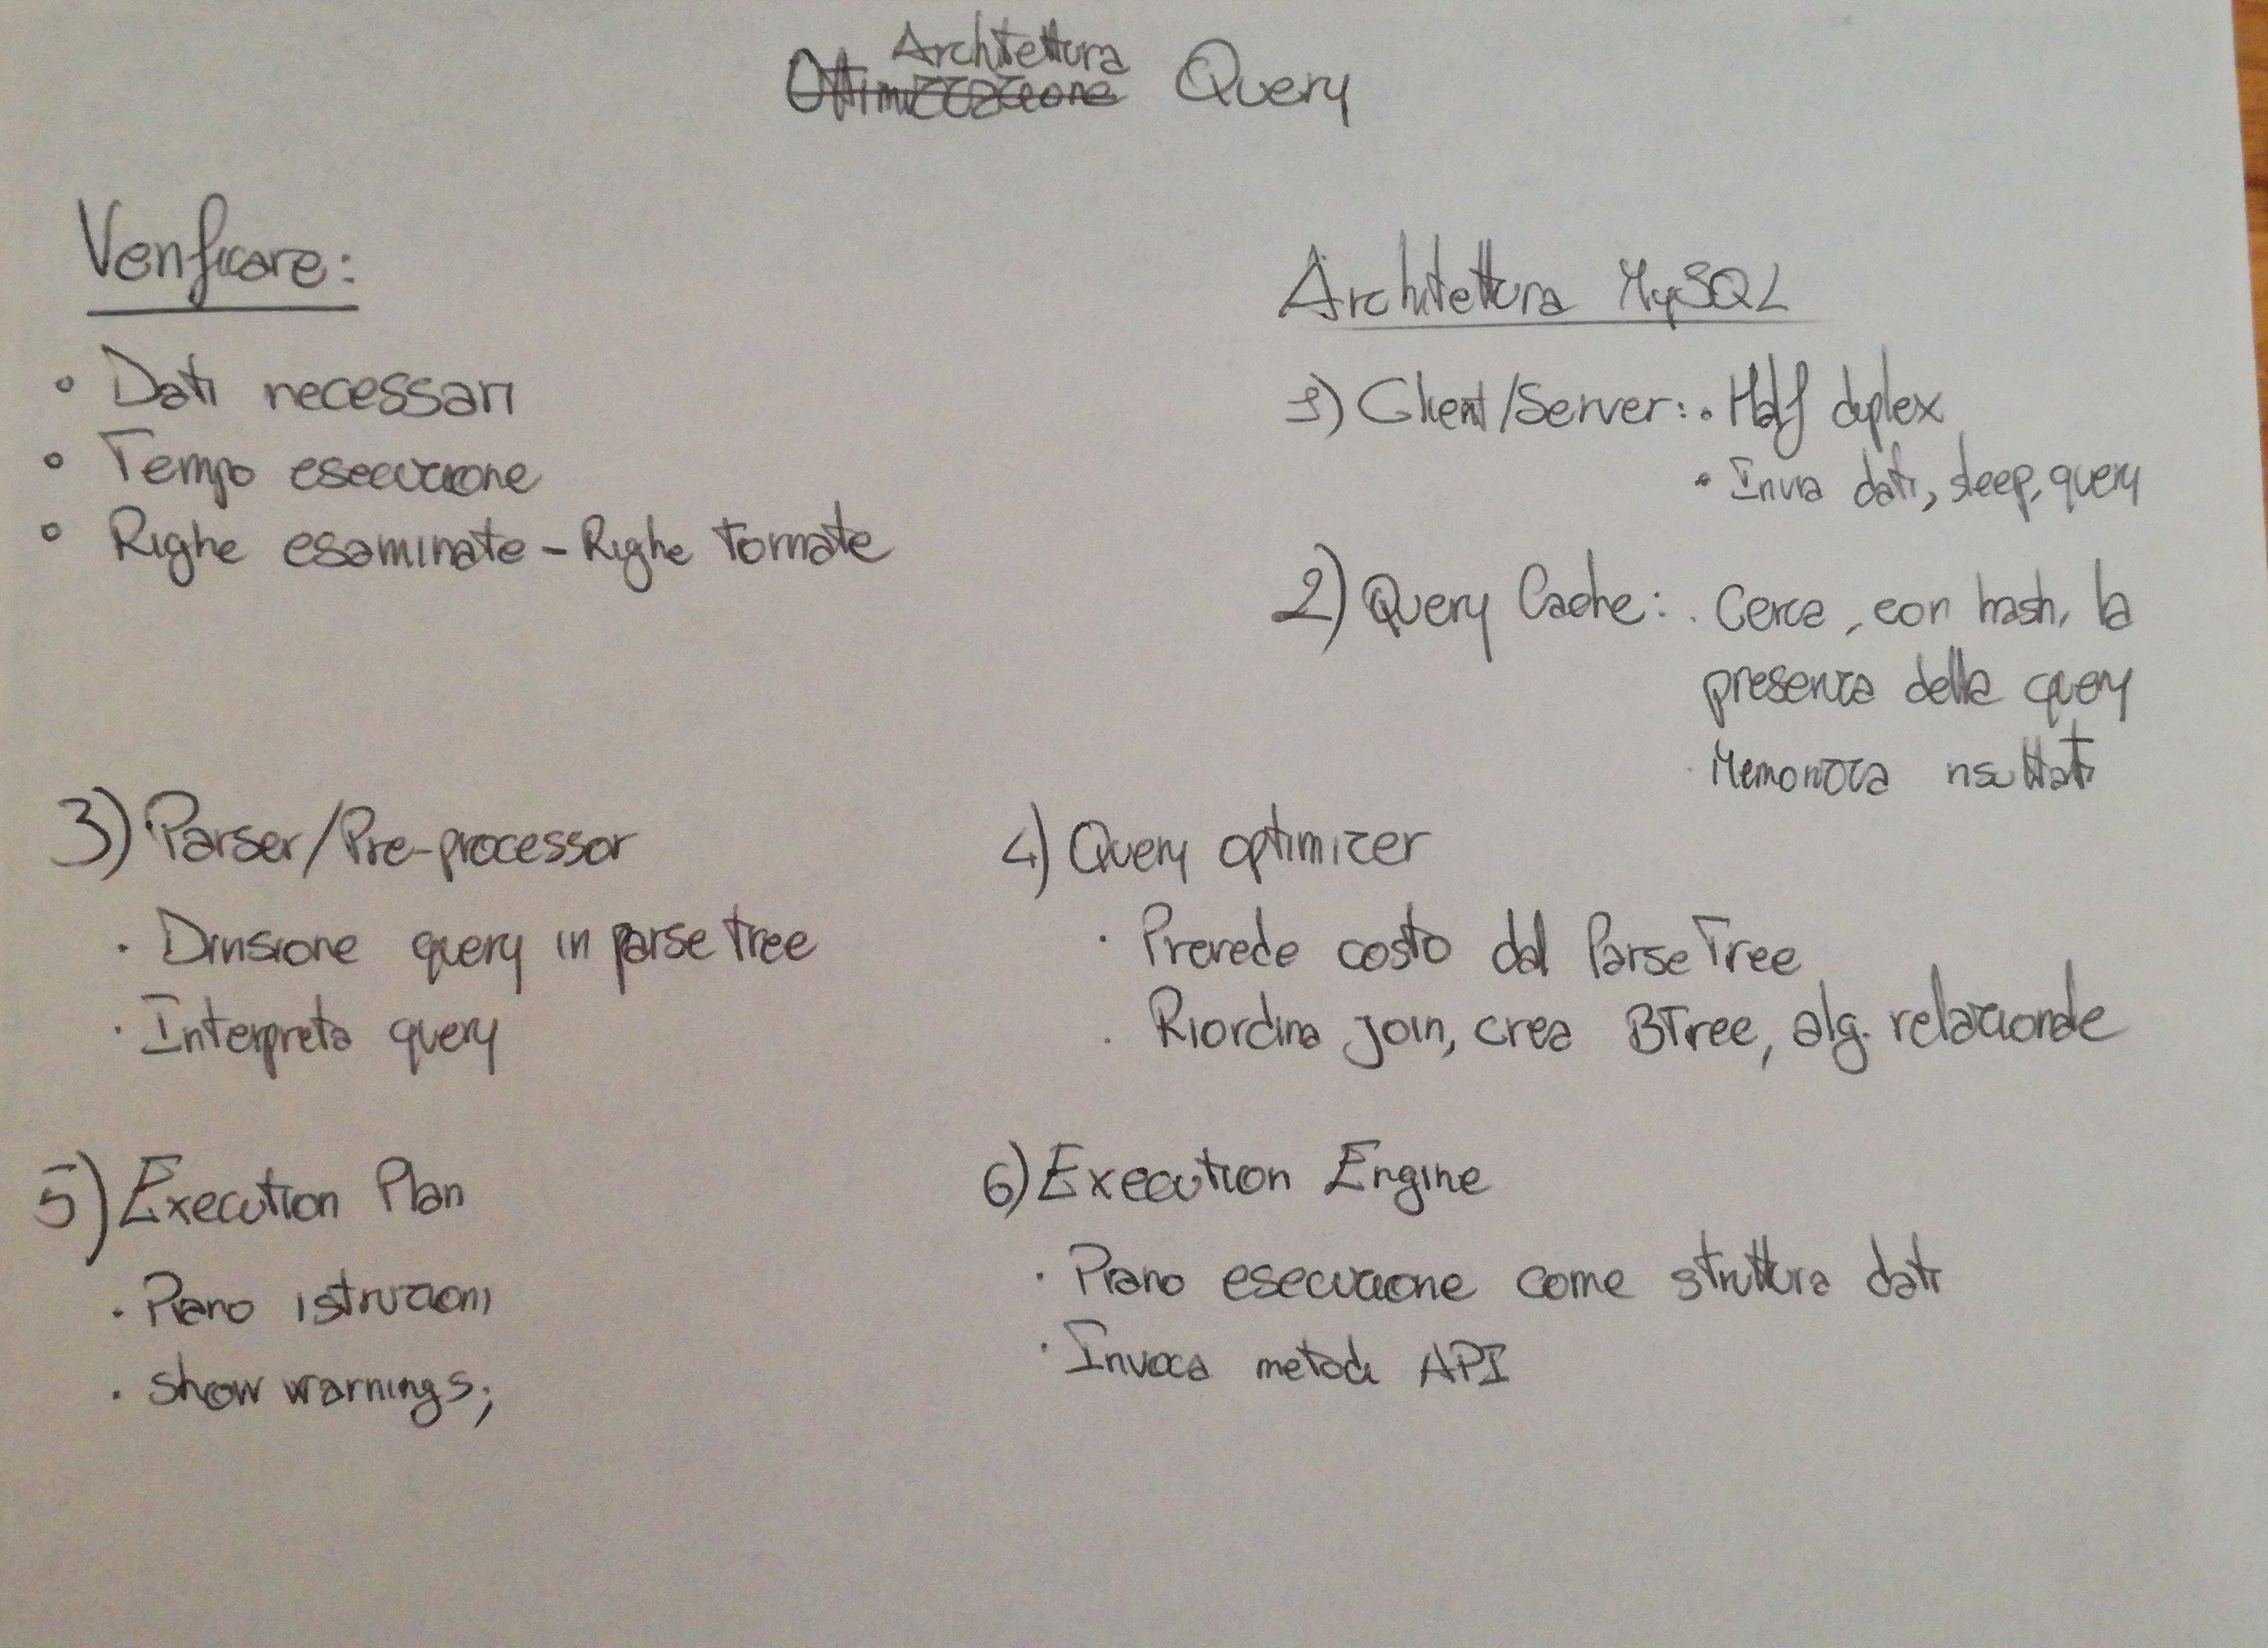 Architettura
Ottimizzazione Query
Verificare:
° Dati necessari
° Tempo esecuzione
° Righe esaminate - Righe tornate
Architettura MySQL
1) Client/Server: · Half duplex
· Invia dati, sleep, query
2) Query Cache: · Cerca, con hash, la
presenza della query
· Memorizza risultati
3) Parser/Pre-processor
· Divisione query in parse tree
· Interpreta query
4) Query optimizer
· Prevede costo dal ParseTree
· Riordina join, crea BTree, alg. relazionale
5) Execution Plan
· Piano istruzioni
· show warnings;
6) Execution Engine
· Piano esecuzione come struttura dati
· Invoca metodi API